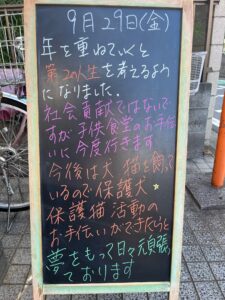 9月29日(金)
年を重ねていくと
第2の人生を考えるよう
になりました.
社会貢献ではないで
すが子供食堂のお手伝
いに今度行きます
今後は犬 猫を飼って
いるので保護犬
保護猫活動の
お手伝いができたらと
夢をもって日々頑張
っております